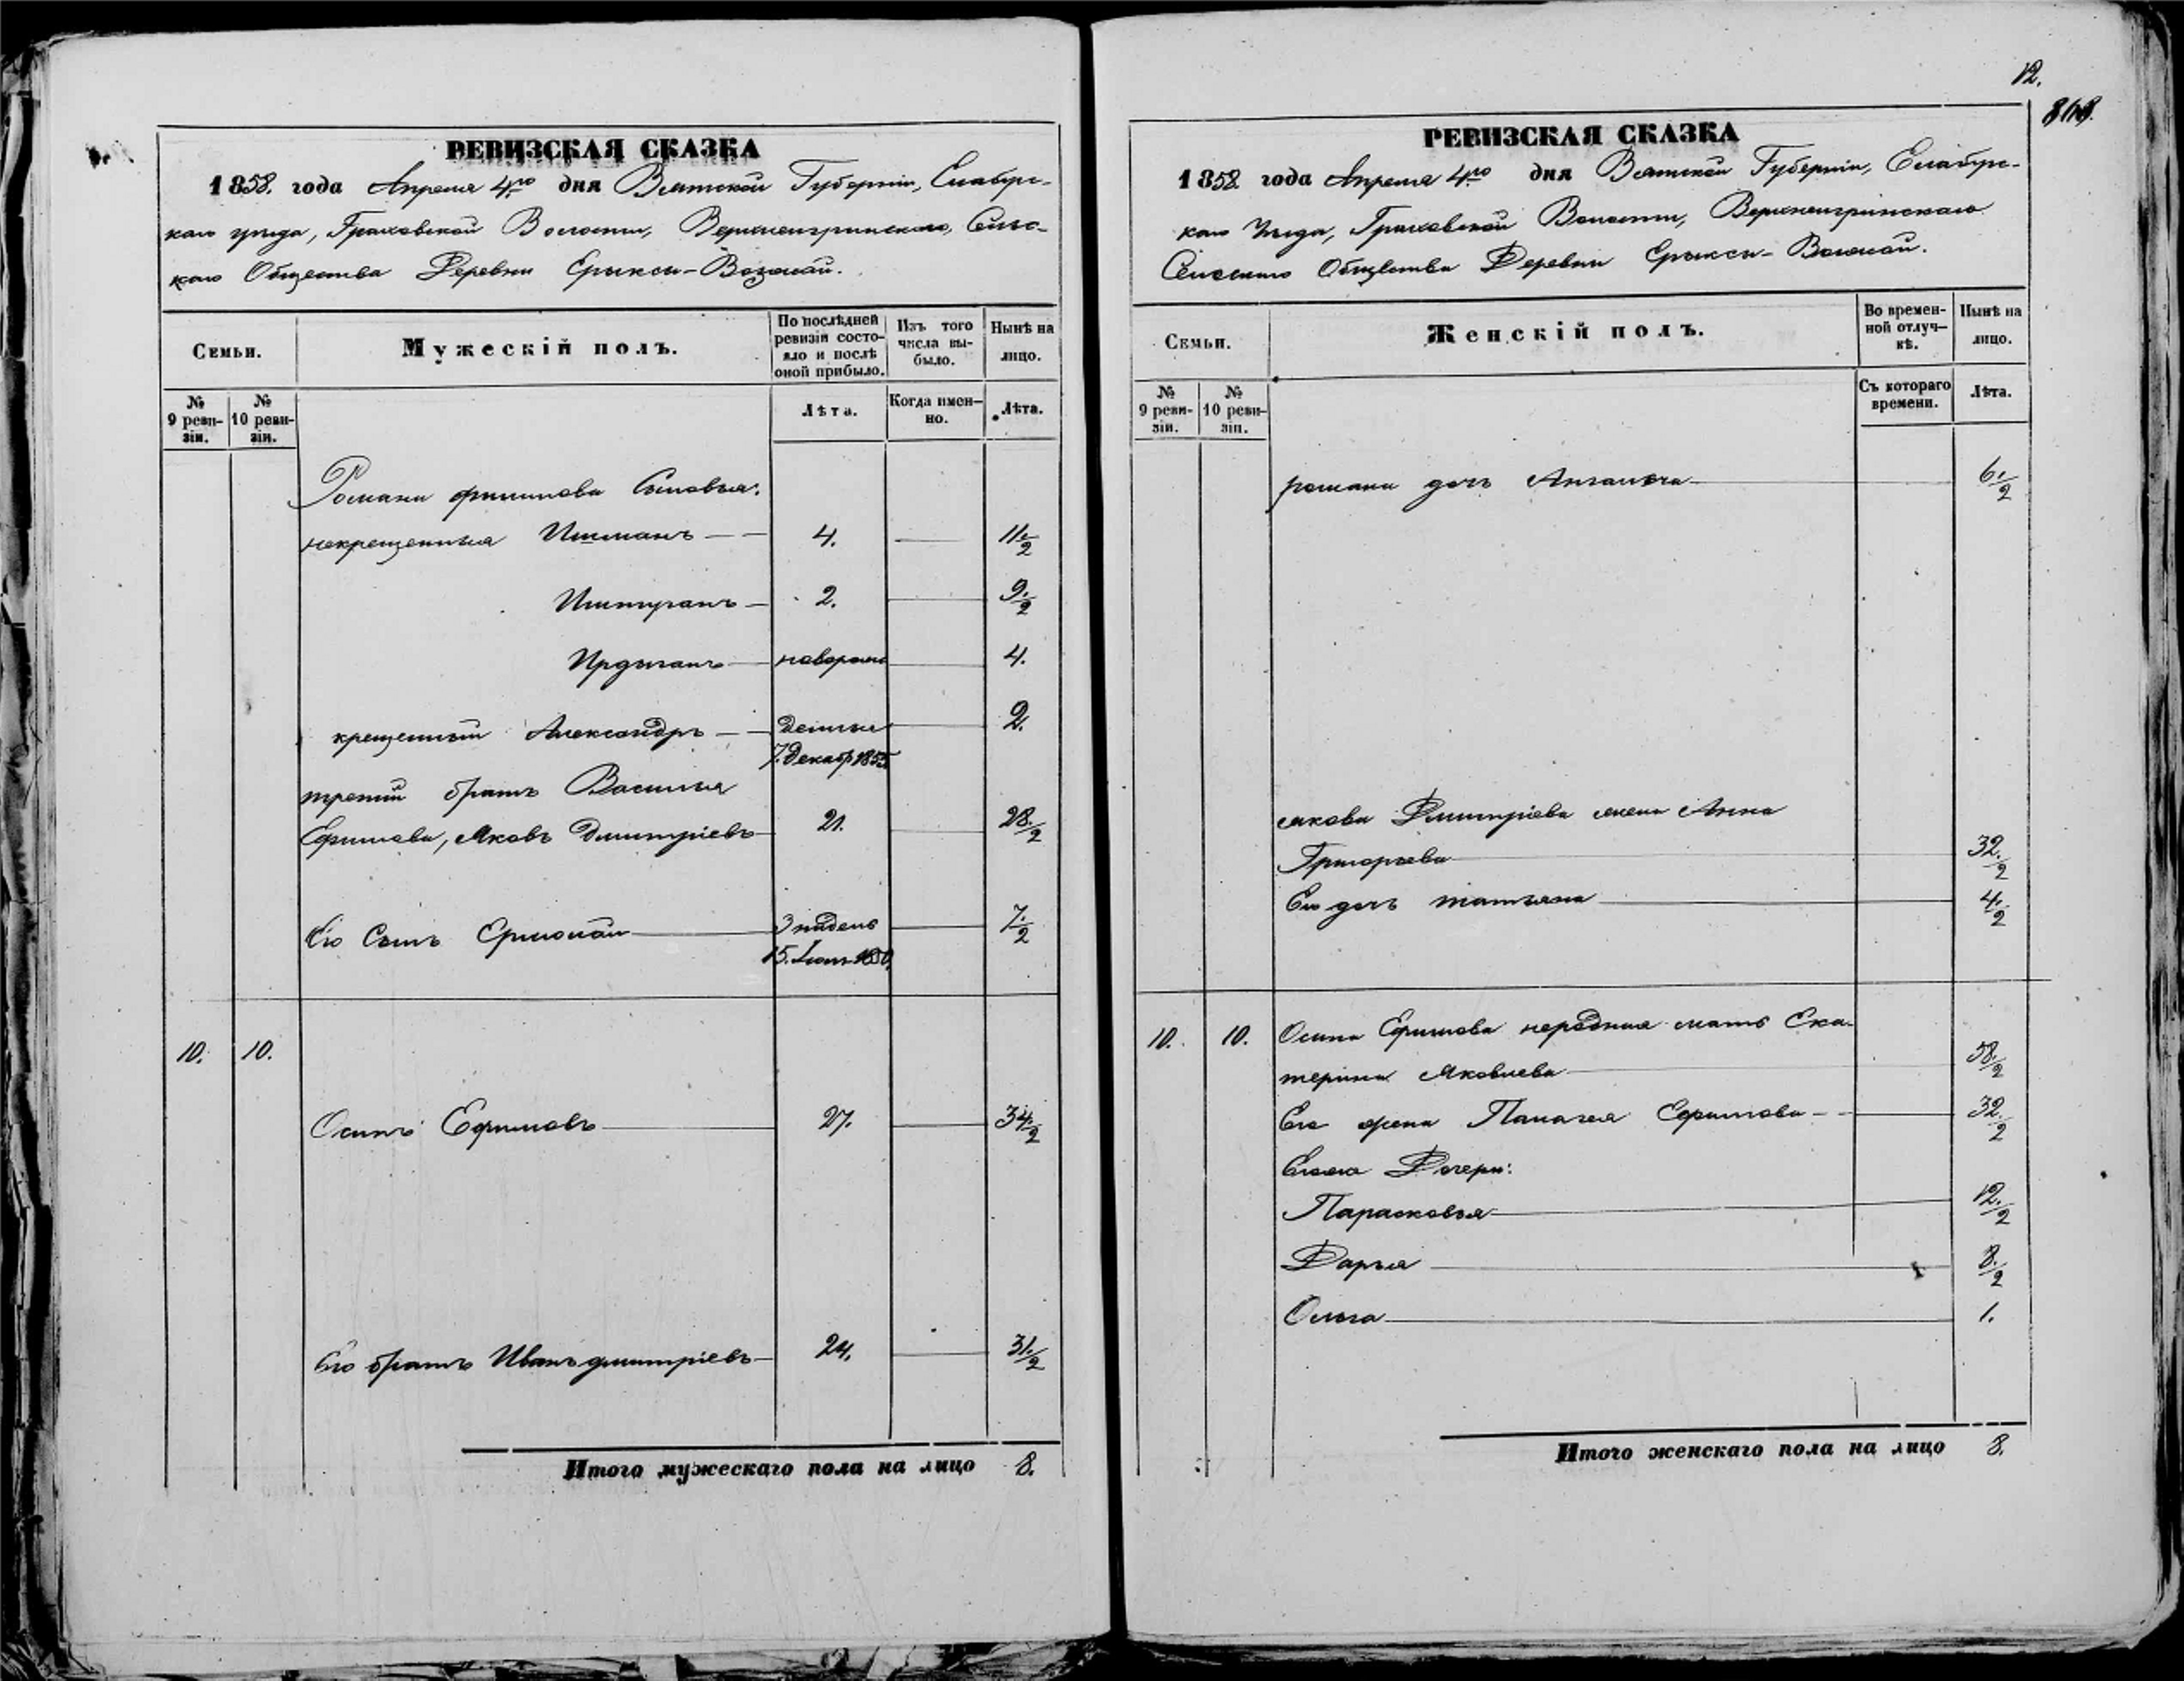 12.
818.
РЕВИЗСКАЯ СКАЗКА
1858. года Апреля 4го дня Вятской Губернiи, Елабуж-
каго уезда, Граховской Волости, Верхнеигринскаго, Сельс-
каго Общества Деревни Ерыксы-
Семьи.
Мужескiй полъ.
По послѣдней ревизiи состо-
яло и послѣ
оной прибыло.
Изъ того
числа вы-
было.
Нынѣ на
лицо.
№
9 реви-
зiи.
№
10 реви-
зiи.
Лѣта.
Когда имен-
но.
Лѣта.
Романа филипова Сыновья:
некрещенныя Ишманъ 4. 11 1/2
Иштуганъ 2. 9 1/2
новорож 4.
крещенный Александръ 2.
7. Декабр 1855
третий братъ Василья
Ефимова, Яковъ Дмитрiевъ 21. 28 1/2
Его Сынъ Ермолай 7 1/2
10. 10.
Осипъ Ефимовъ 27. 34 1/2
Его братъ Иванъ дмитрiевъ 24. 31 1/2
Итого мужескаго пола на лицо 8.
РЕВИЗСКАЯ СКАЗКА
1858 года Апреля 4го дня Вятской Губернiи, Елабуж-
каго Уезда, Граховской Волости, Верхнеигринскаго
Сельскаго Общества Деревни Ерыксы-
Семьи.
Женскiй полъ.
Во времен-
ной отлуч-
кѣ.
Нынѣ на
лицо.
№
9 реви-
зiи.
№
10 реви-
зiи.
Съ котораго
времени.
Лѣта.
романа дочь 6 1/2
якова Дмитрiева жена Анна
Григорьева 32 1/2
Его дочь татьяна 4 1/2
10. 10. Осипа Ефимова неродная мать Ека-
терина Яковлева 58 1/2
Его жена Палагея Ефимова 32 1/2
Дочери:
Парасковья 12 1/2
Дарья 8 1/2
Ольга 1.
Итого женскаго пола на лицо 8.